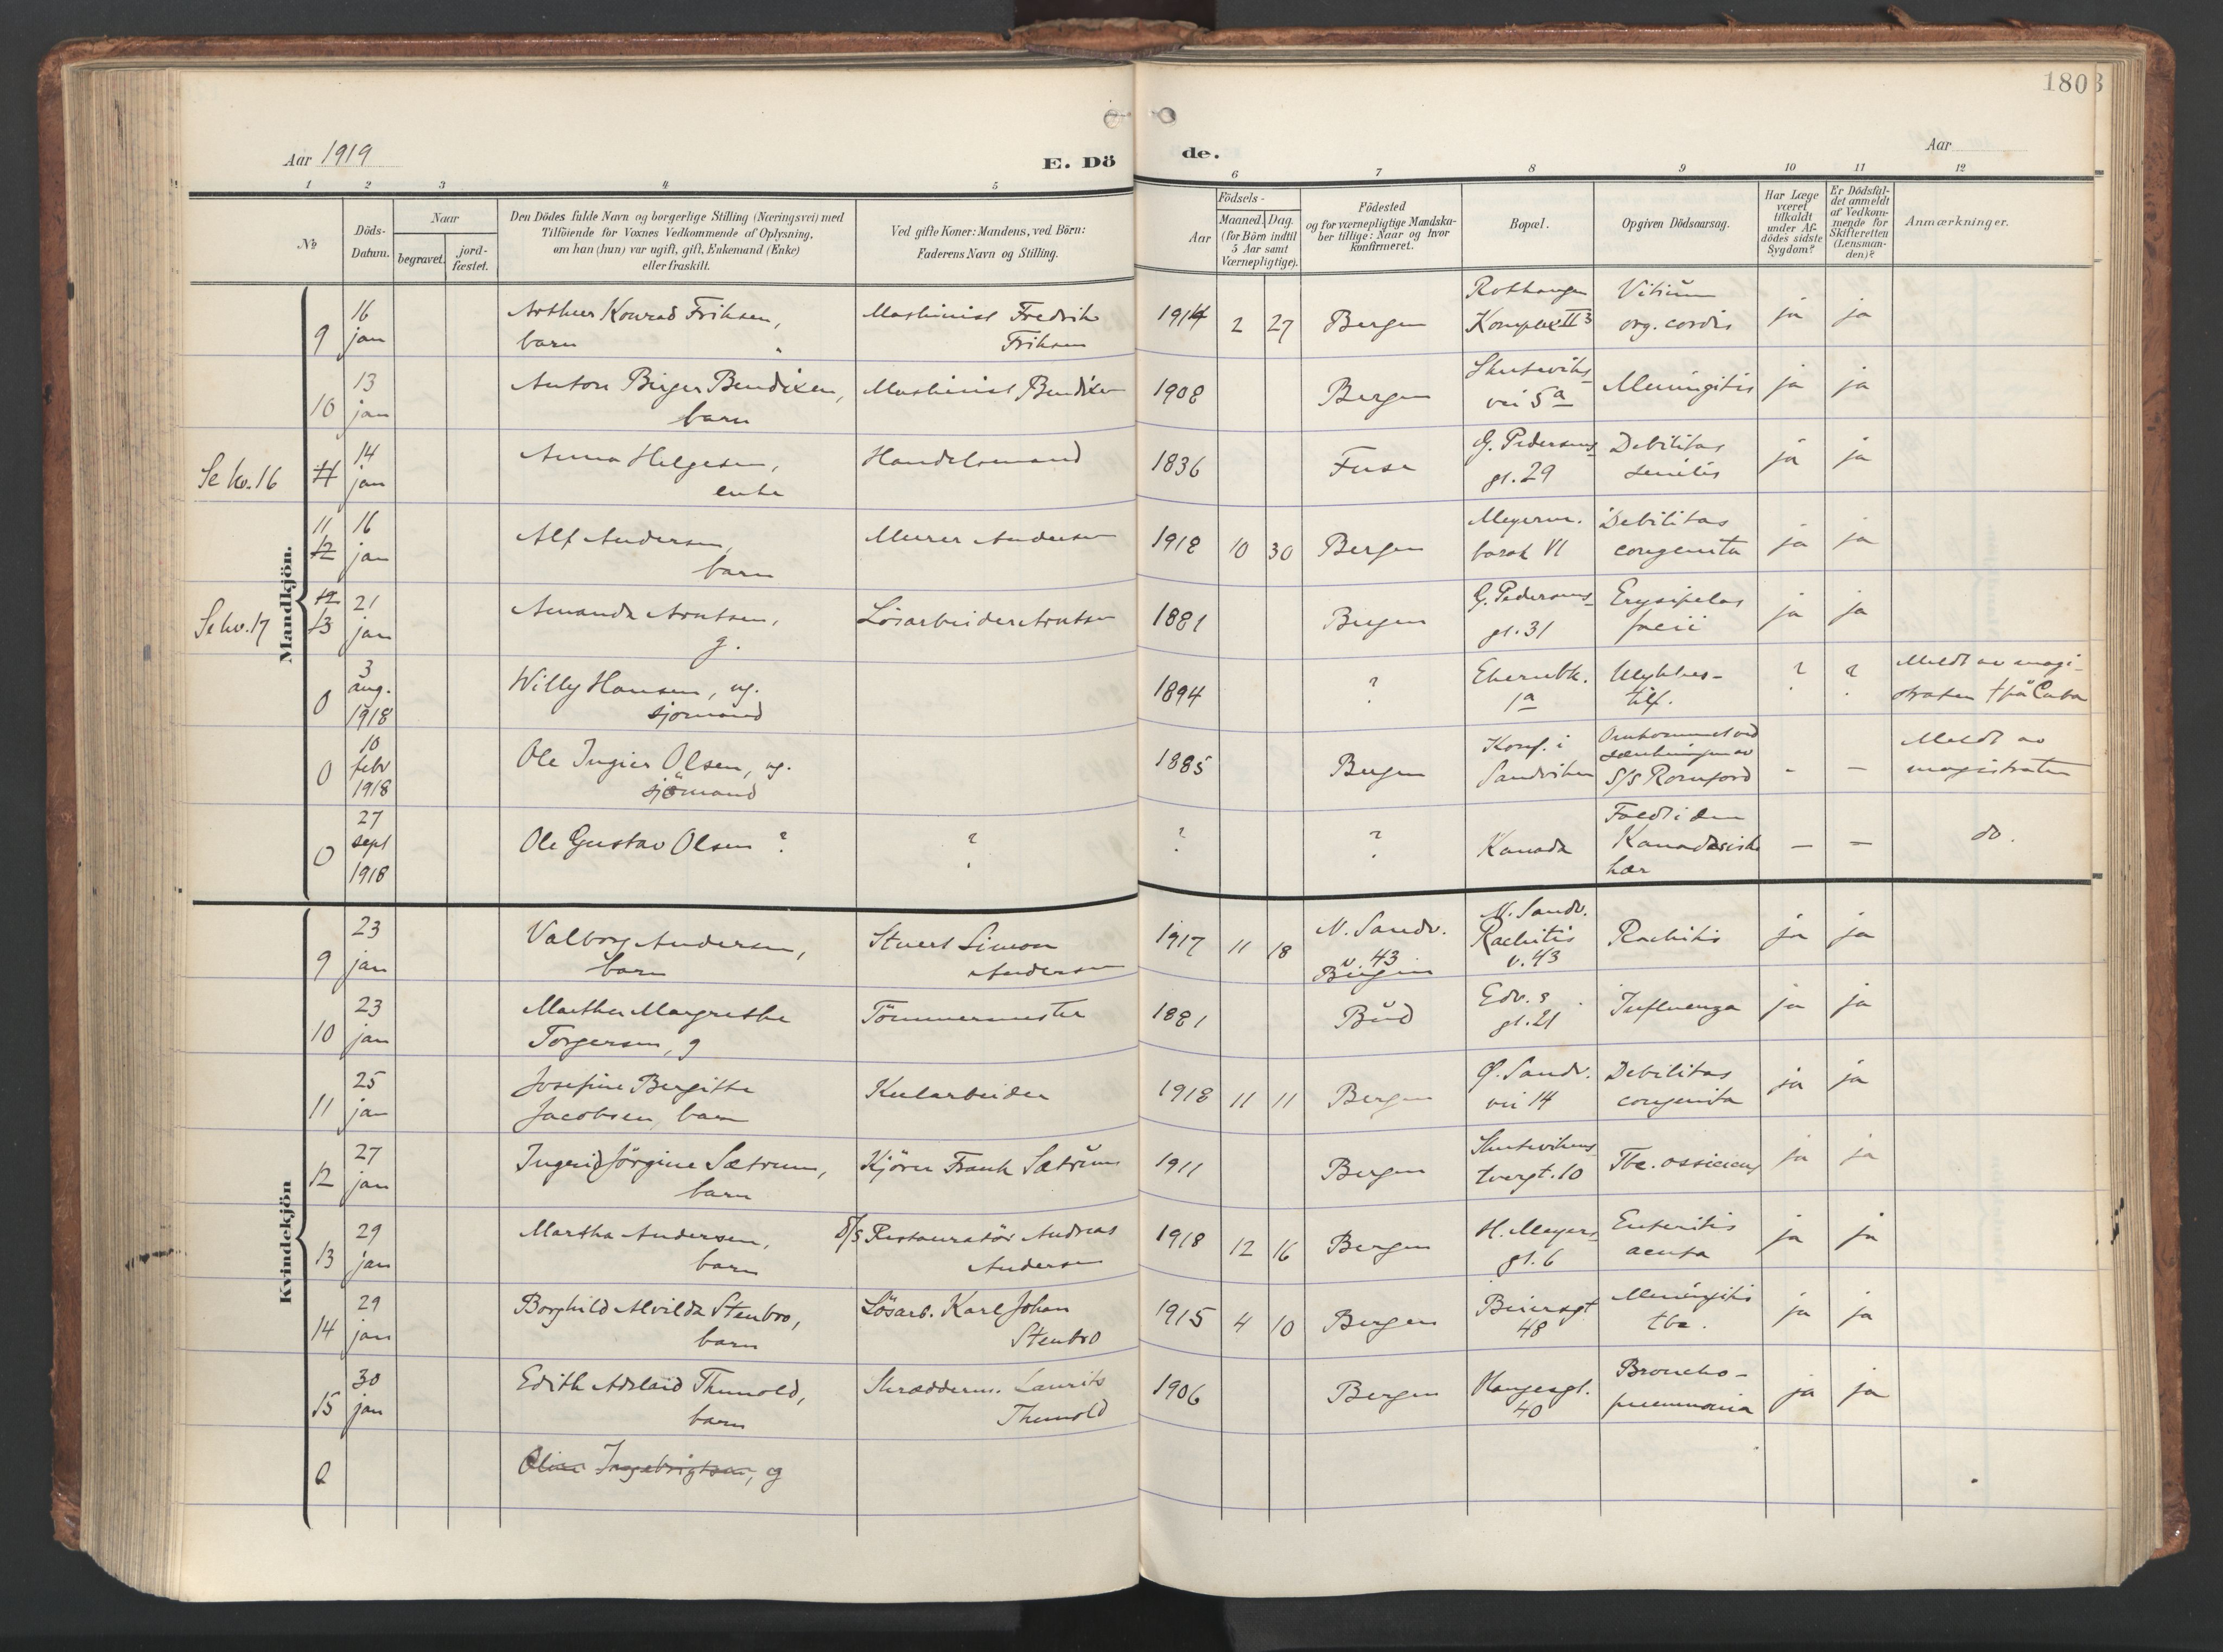 1803
Aar 1919
E. Dö
de.
Aar
1 2 3 4 5
6 7 8 9 10 11 12
№
Döds-
Datum.
Naar
begravet.
jord-
fæstet.
Den Dödes fulde Navn og borgerlige Stilling (Næringsvei) med
Tilföiende for Voxnes Vedkommende af Oplysning,
om han (hun) var ugift, gift, Enkemand (Enke)
eller fraskilt.
Ved gifte Koner: Mandens, ved Börn:
Faderens Navn og Stilling.
Födsels-
Aar
Maaned. Dag.
(for Börn indtil
5 Aar samt
Værnepligtige).
Födested
og for værnepligtige Mandska-
ber tillige: Naar og hvor
Konfirmeret.
Bopæl.
Opgiven Dödsaarsag.
Har Læge
været
tilkaldt
under Af-
dödes sidste
Sygdom?
Er Dödsfal-
det anmeldt
af Vedkom-
mende for
Skifteretten
(Lensman-
den)?
Anmærkninger.
Mandkjön.
9 16 jan
Arthur Konrad Eriksen,
barn
Maskinist Fredrik
Eriksen
1914 2 27 Bergen
Rothaugen
Komplex II 3
Vitium
org. cordis
ja ja
10 13 jan
Anton Birger Bendixen,
barn
Maskinist Bendixen
1908 Bergen
Skuteviks-
vei 5a
Meningitis
ja ja
Se kv. 16
11 14 jan
Anna Helgesen,
enke
Handelsmand
1836 Fuse
G. Pedersens
gt. 29
Debilitas
senilis
ja ja
11
12 16 jan
Alf Andersen,
barn
Murer Andersen
1918 10 30 Bergen
Meyerm.
barak VI
Debilitas
congenita
ja ja
Se kv. 17
12
13 21 jan
Amanda Arntsen,
g.
Lösarbeider Arntsen
1881 Bergen
G. Pedersens
gt. 31
Erysipelas
faciei
ja ja
0 3 aug. 1918
Willy Hansen, ug.
sjømand
1894 ?
1a
Ulykkes-
tilf.
? ?
Meldt av magi-
straten † på Cuba
0 10 febr 1918
Ole Ingier Olsen, ug.
sjömand
1885 Bergen
Konf. i
Sandviken
Omkommet ved
sænkningen av
S/S Romford
- -
Meldt av
magistraten
0 27 sept 1918
Ole Gustav Olsen ?
? ? ?
Kanada
Faldt i den
Kanadasiske
hær
- -
do.
Kvindekjön
9 23 jan
Valborg Andersen,
barn
Stuert Simon
Andersen
1917 11 18
N. Sandv.
v. 43
Bergen
N. Sandv.
Rachitis
v. 43
Rachitis
ja ja
10 23 jan
Marthe Margrethe
Torgersen, g
Tömmermester
1881 Bud
Edv. s
gt. 21
Influenza
ja ja
11 25 jan
Josefine Bergitte
Jacobsen, barn
Kularbeider
1918 11 11 Bergen
Ø. Sandv.
vei 14
Debilitas
congenita
ja ja
12 27 jan
Ingrid Jörgine Sætrum,
barn
Kjörer Frank Sætrum
1911 Bergen
Skutevikens
tvergt. 10
Tbc. ossium
ja ja
13 29 jan
Martha Andersen,
barn
D/S Restauratör Andreas
Andersen
1918 12 16 Bergen
H. Meyers
gt. 6
Enteritis
acuta
ja ja
14 29 jan
Borghild Alvilda Stenbro,
barn
Lösarb. Karl Johan
Stenbro
1915 4 10 Bergen
Beiersgt
48
Meningitis
tbc.
ja ja
15 30 jan
Edith Adelaid Thunold,
barn
Skrædderm. Laurits
Thunold
1906 Bergen
Haugesgt.
40
Broncho-
pneumonia
ja ja
0
Oline Ingebrigtsen, g